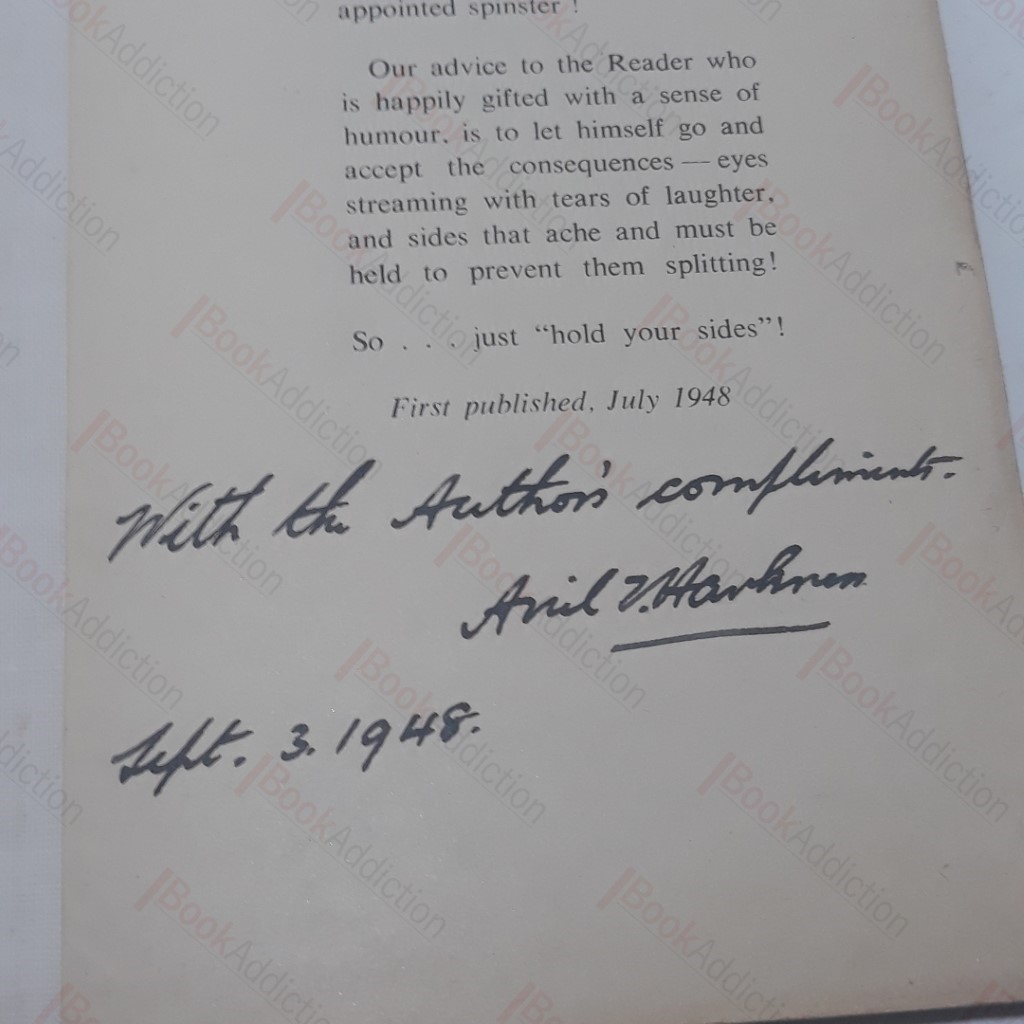 appointed spinster !
Our advice to the Reader who
is happily gifted with a sense of
humour, is to let himself go and
accept the consequences — eyes
streaming with tears of laughter,
and sides that ache and must be
held to prevent them splitting!
So . . . just “hold your sides”!
First published, July 1948
With the Author's compliments.
Harkness
Sept. 3. 1948.
BookAddiction